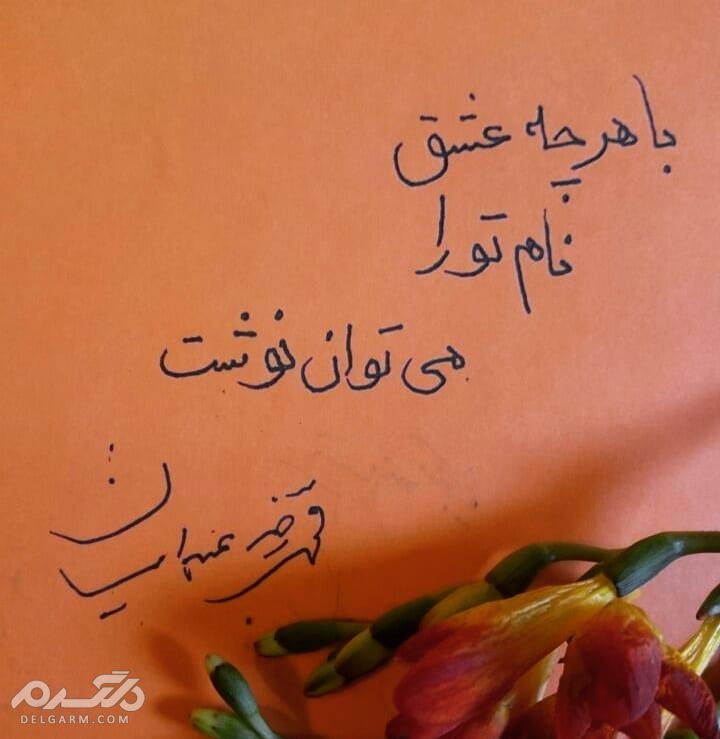 با هر چه عشق
نام تو را
می توان نوشت
دلگرم
DELGARM.COM